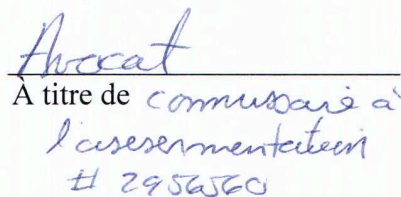 Avocat
À titre de commissaire à
l'assermentation
# 2956560